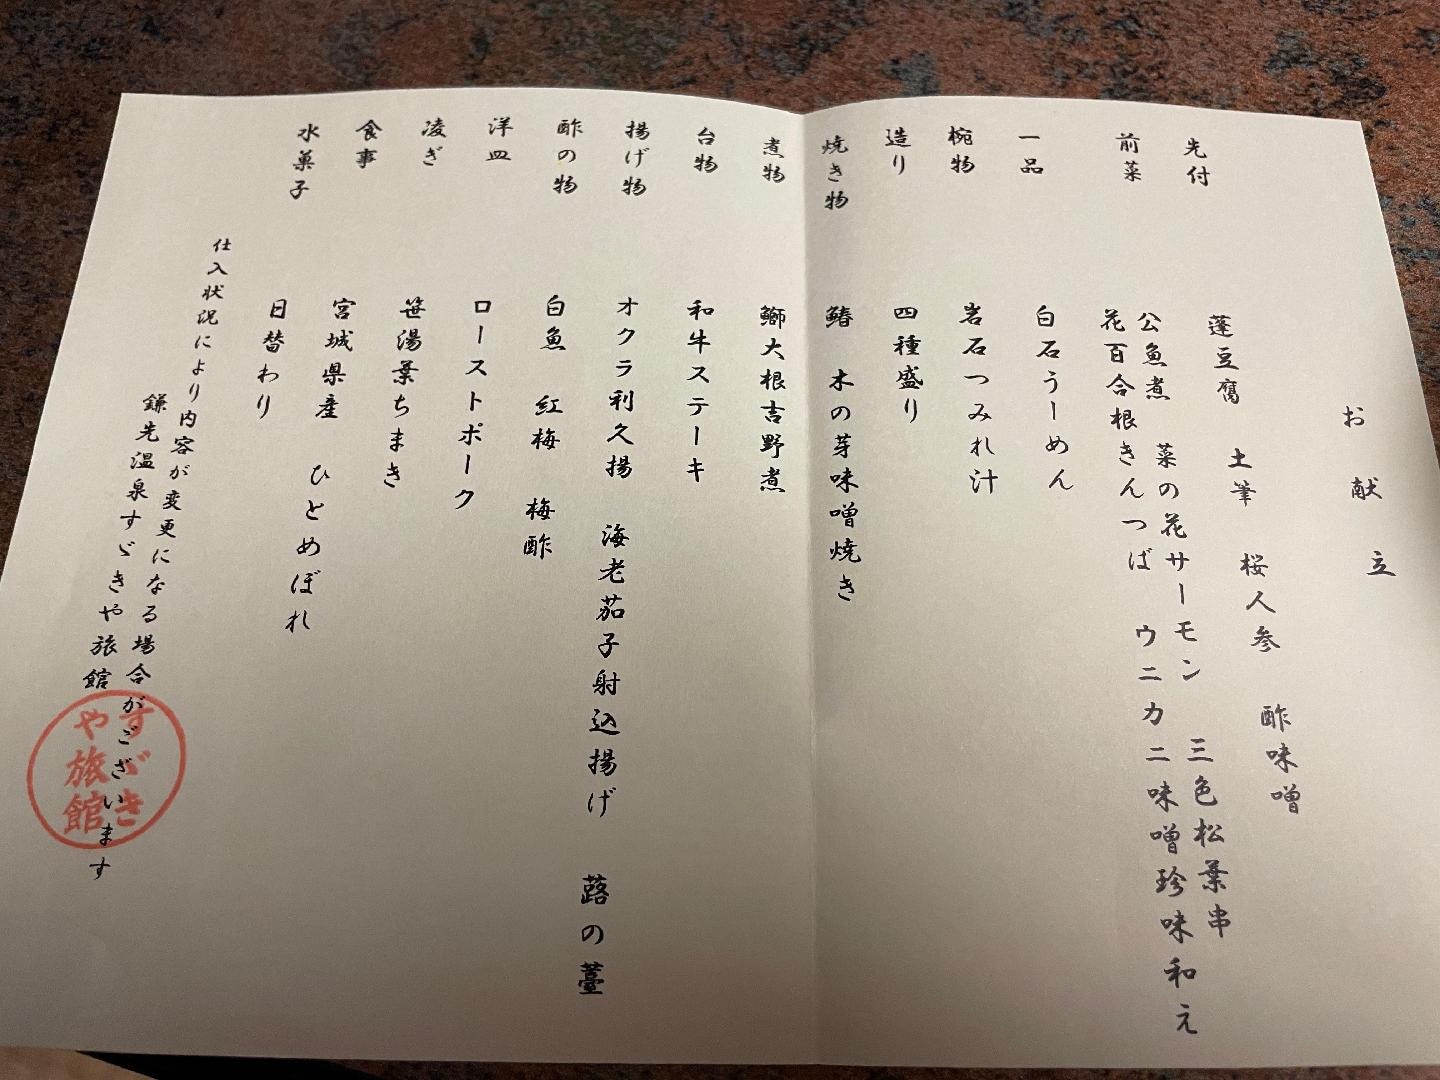 お献立
先付　蓬豆腐　土筆　桜人参　酢味噌
前菜　公魚煮　菜の花サーモン　三色松葉串
花百合根きんつば　ウニカニ味噌珍味和え
一品　白石うーめん
椀物　岩石つみれ汁
造り　四種盛り
焼き物　鰆　木の芽味噌焼き
煮物　鰤大根吉野煮
台物　和牛ステーキ
揚げ物　オクラ利久揚　海老茄子射込揚げ　蕗の薹
酢の物　白魚　紅梅　梅酢
洋皿　ローストポーク
凌ぎ　笹湯葉ちまき
食事　宮城県産　ひとめぼれ
水菓子　日替わり
仕入状況により内容が変更になる場合がございます
鎌先温泉すゞきや旅館
すゞき
や旅館